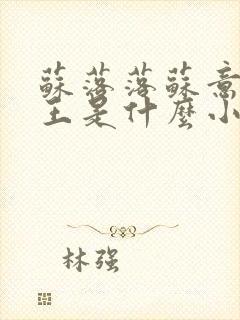 蘇落落蘇意
王是什麼小
林强